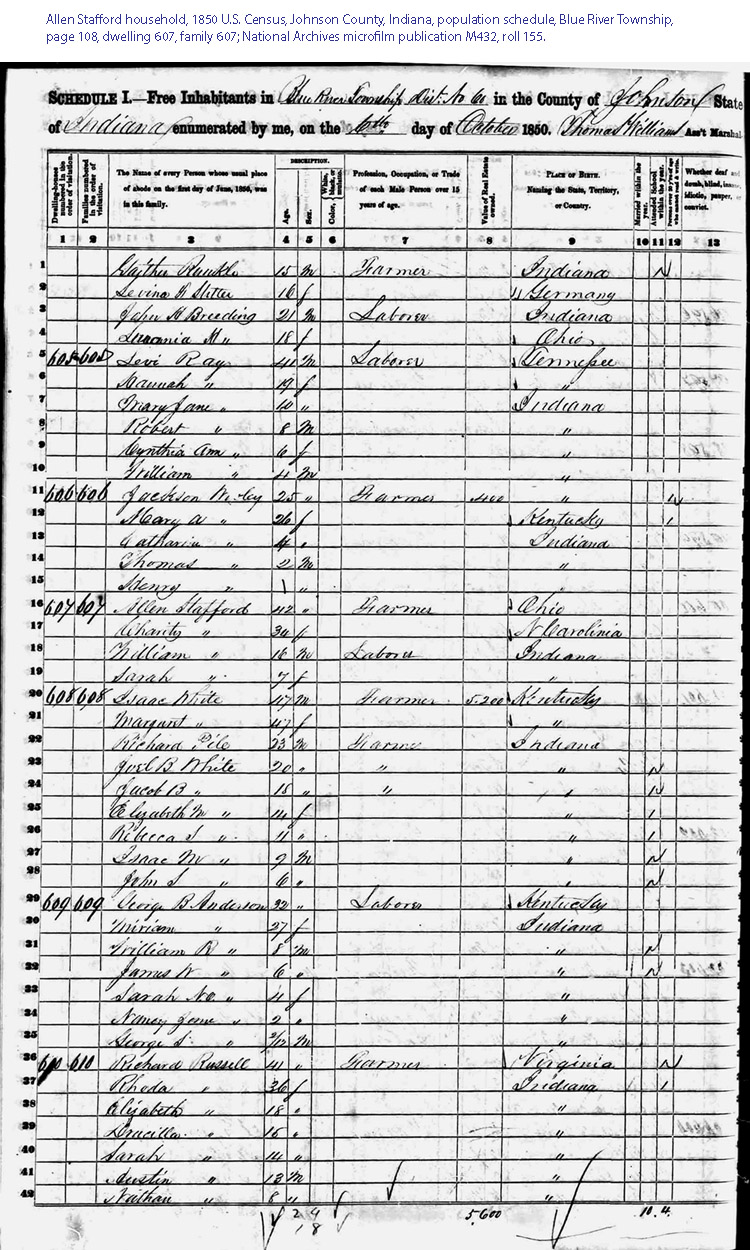 Allen Stafford household, 1850 U.S. Census, Johnson County, Indiana, population schedule, Blue River Township,
page 108, dwelling 607, family 607; National Archives microfilm publication M432, roll 155.
SCHEDULE I.—Free Inhabitants in Blue River Township Dist. No 60 in the County of Johnson State
of Indiana enumerated by me, on the 6th day of October 1850. Thomas Williams Ass't Marshal
Dwelling-houses numbered in the order of visitation.
Families numbered in the order of visitation.
The Name of every Person whose usual place of abode on the first day of June, 1850, was in this family.
DESCRIPTION.
Age.
Sex.
Color,
Profession, Occupation, or Trade of each Male Person over 15 years of age.
Value of Real Estate owned.
PLACE OF BIRTH. Naming the State, Territory, or Country.
Married within the year.
Attended School within the year.
Whether deaf and dumb, blind, insane, idiotic, pauper, or convict.
1 2 3 4 5 6 7 8 9 10 11 12 13
1 15 m Farmer Indiana
2 Levina 16 f Germany
3 John H Breeding 21 m Laborer Indiana
4 M " 18 f Ohio
5 605 605 Levi Ray 41 M Laborer Tennessee
6 Hannah " 19 f "
7 Mary Jane " 10 " Indiana
8 Robert " 8 M "
9 Cynthia Ann " 6 f "
10 William " 4 M "
11 606 606 Jackson 25 " Farmer 400 "
12 Mary A " 26 f Kentucky
13 Catharine " 4 " Indiana
14 Thomas " 2 M "
15 Henry " 1 " "
16 607 607 Allen Stafford 42 " Farmer Ohio
17 Charity " f N Carolinia
18 William " 16 M Laborer Indiana
19 Sarah " 7 f "
20 608 608 Isaac White 47 M Farmer 5.200 Kentucky
21 Margaret " 47 f "
22 Richard Pile 23 M Farme Indiana
23 Joel B White 20 " " "
24 Jacob B " 18 " " "
25 Elizabeth M " 14 f "
26 Rebecca S " 11 " "
27 Isaac M " 9 M "
28 John S " 6 " "
29 609 609 George B Anderson 32 " Laborer Kentucky
30 Miriam " 27 f Indiana
31 William R " 8 M "
32 James W " 6 " "
33 Sarah " 4 f "
34 Nancy Jane " 2 " "
35 George S " 2/12 M "
36 610 610 Richard Russell 41 " Farmer Virginia
37 Rheda " 36 f Indiana
38 Elizabeth " 18 " "
39 Drucilla " 15 " "
40 Sarah " 14 " "
41 Austin " 13 M "
42 Nathan " 8 " "
5.600 10. 4.